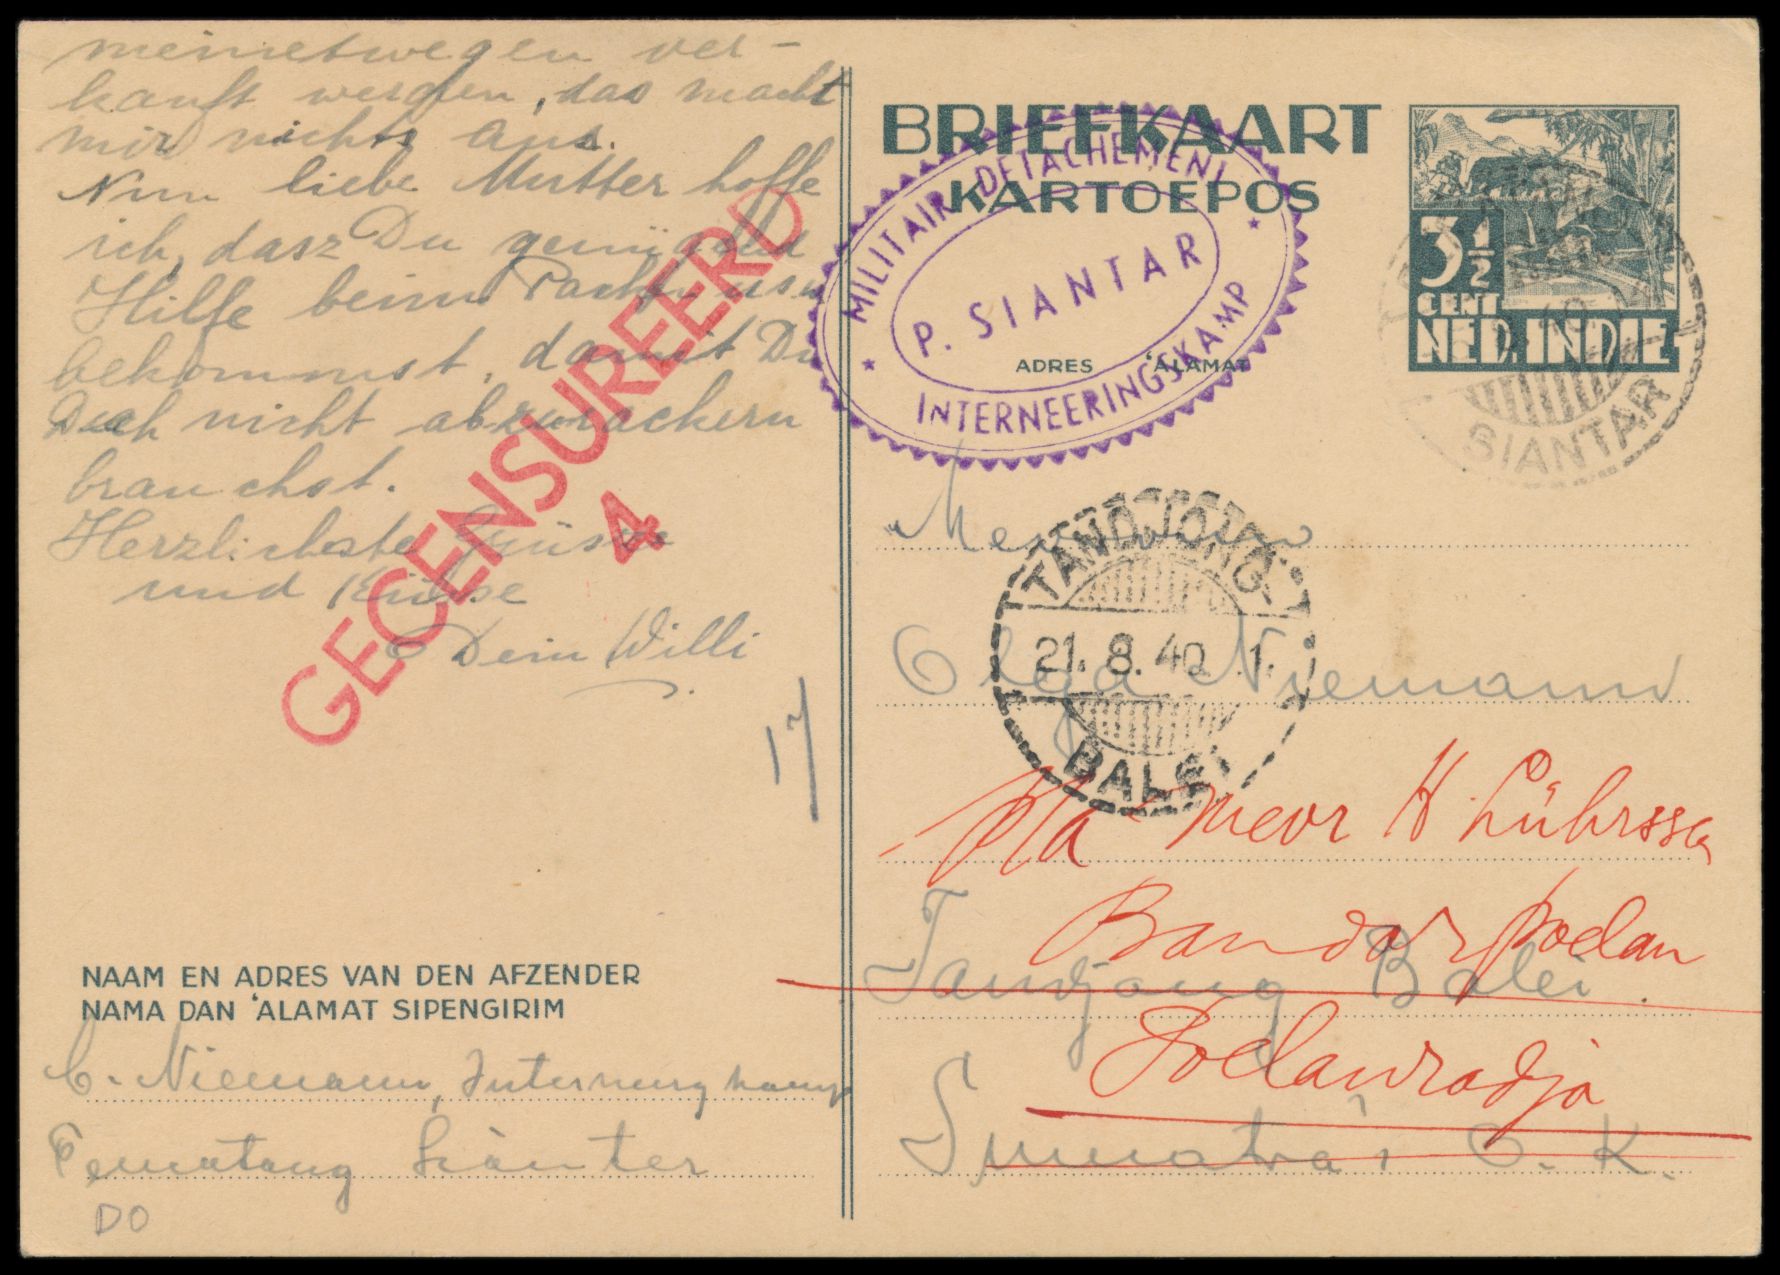 meinetwegen ver-
kauft werden, das macht
mir nichts aus.
Nun liebe Mutter hoffe
ich, dasz Du genügend
Hilfe beim Packen usw
bekommst, damit Du
Dich nicht abzurackern
brauchst.
Herzlichste Grüsse
und Küsse
Dein Willi
GECENSUREERD
4
17
NAAM EN ADRES VAN DEN AFZENDER
NAMA DAN 'ALAMAT SIPENGIRIM
C. Niemann, Interneringkamp
Pematang Siantar
DO
BRIEFKAART
KARTOEPOS
MILITAIR DETACHEMENT
P. SIANTAR
INTERNEERINGSKAMP
ADRES 'ALAMAT
3½
CENT
NED. INDIE
SIANTAR
TANDJONG
21. 8. 40 1.
BALEI
Mevrouw
Olga Niemann
p/a Mevr H Lührssen
Bandarpoelau
Tandjong Balei.
Poelauradja
Sumatra, O. K.